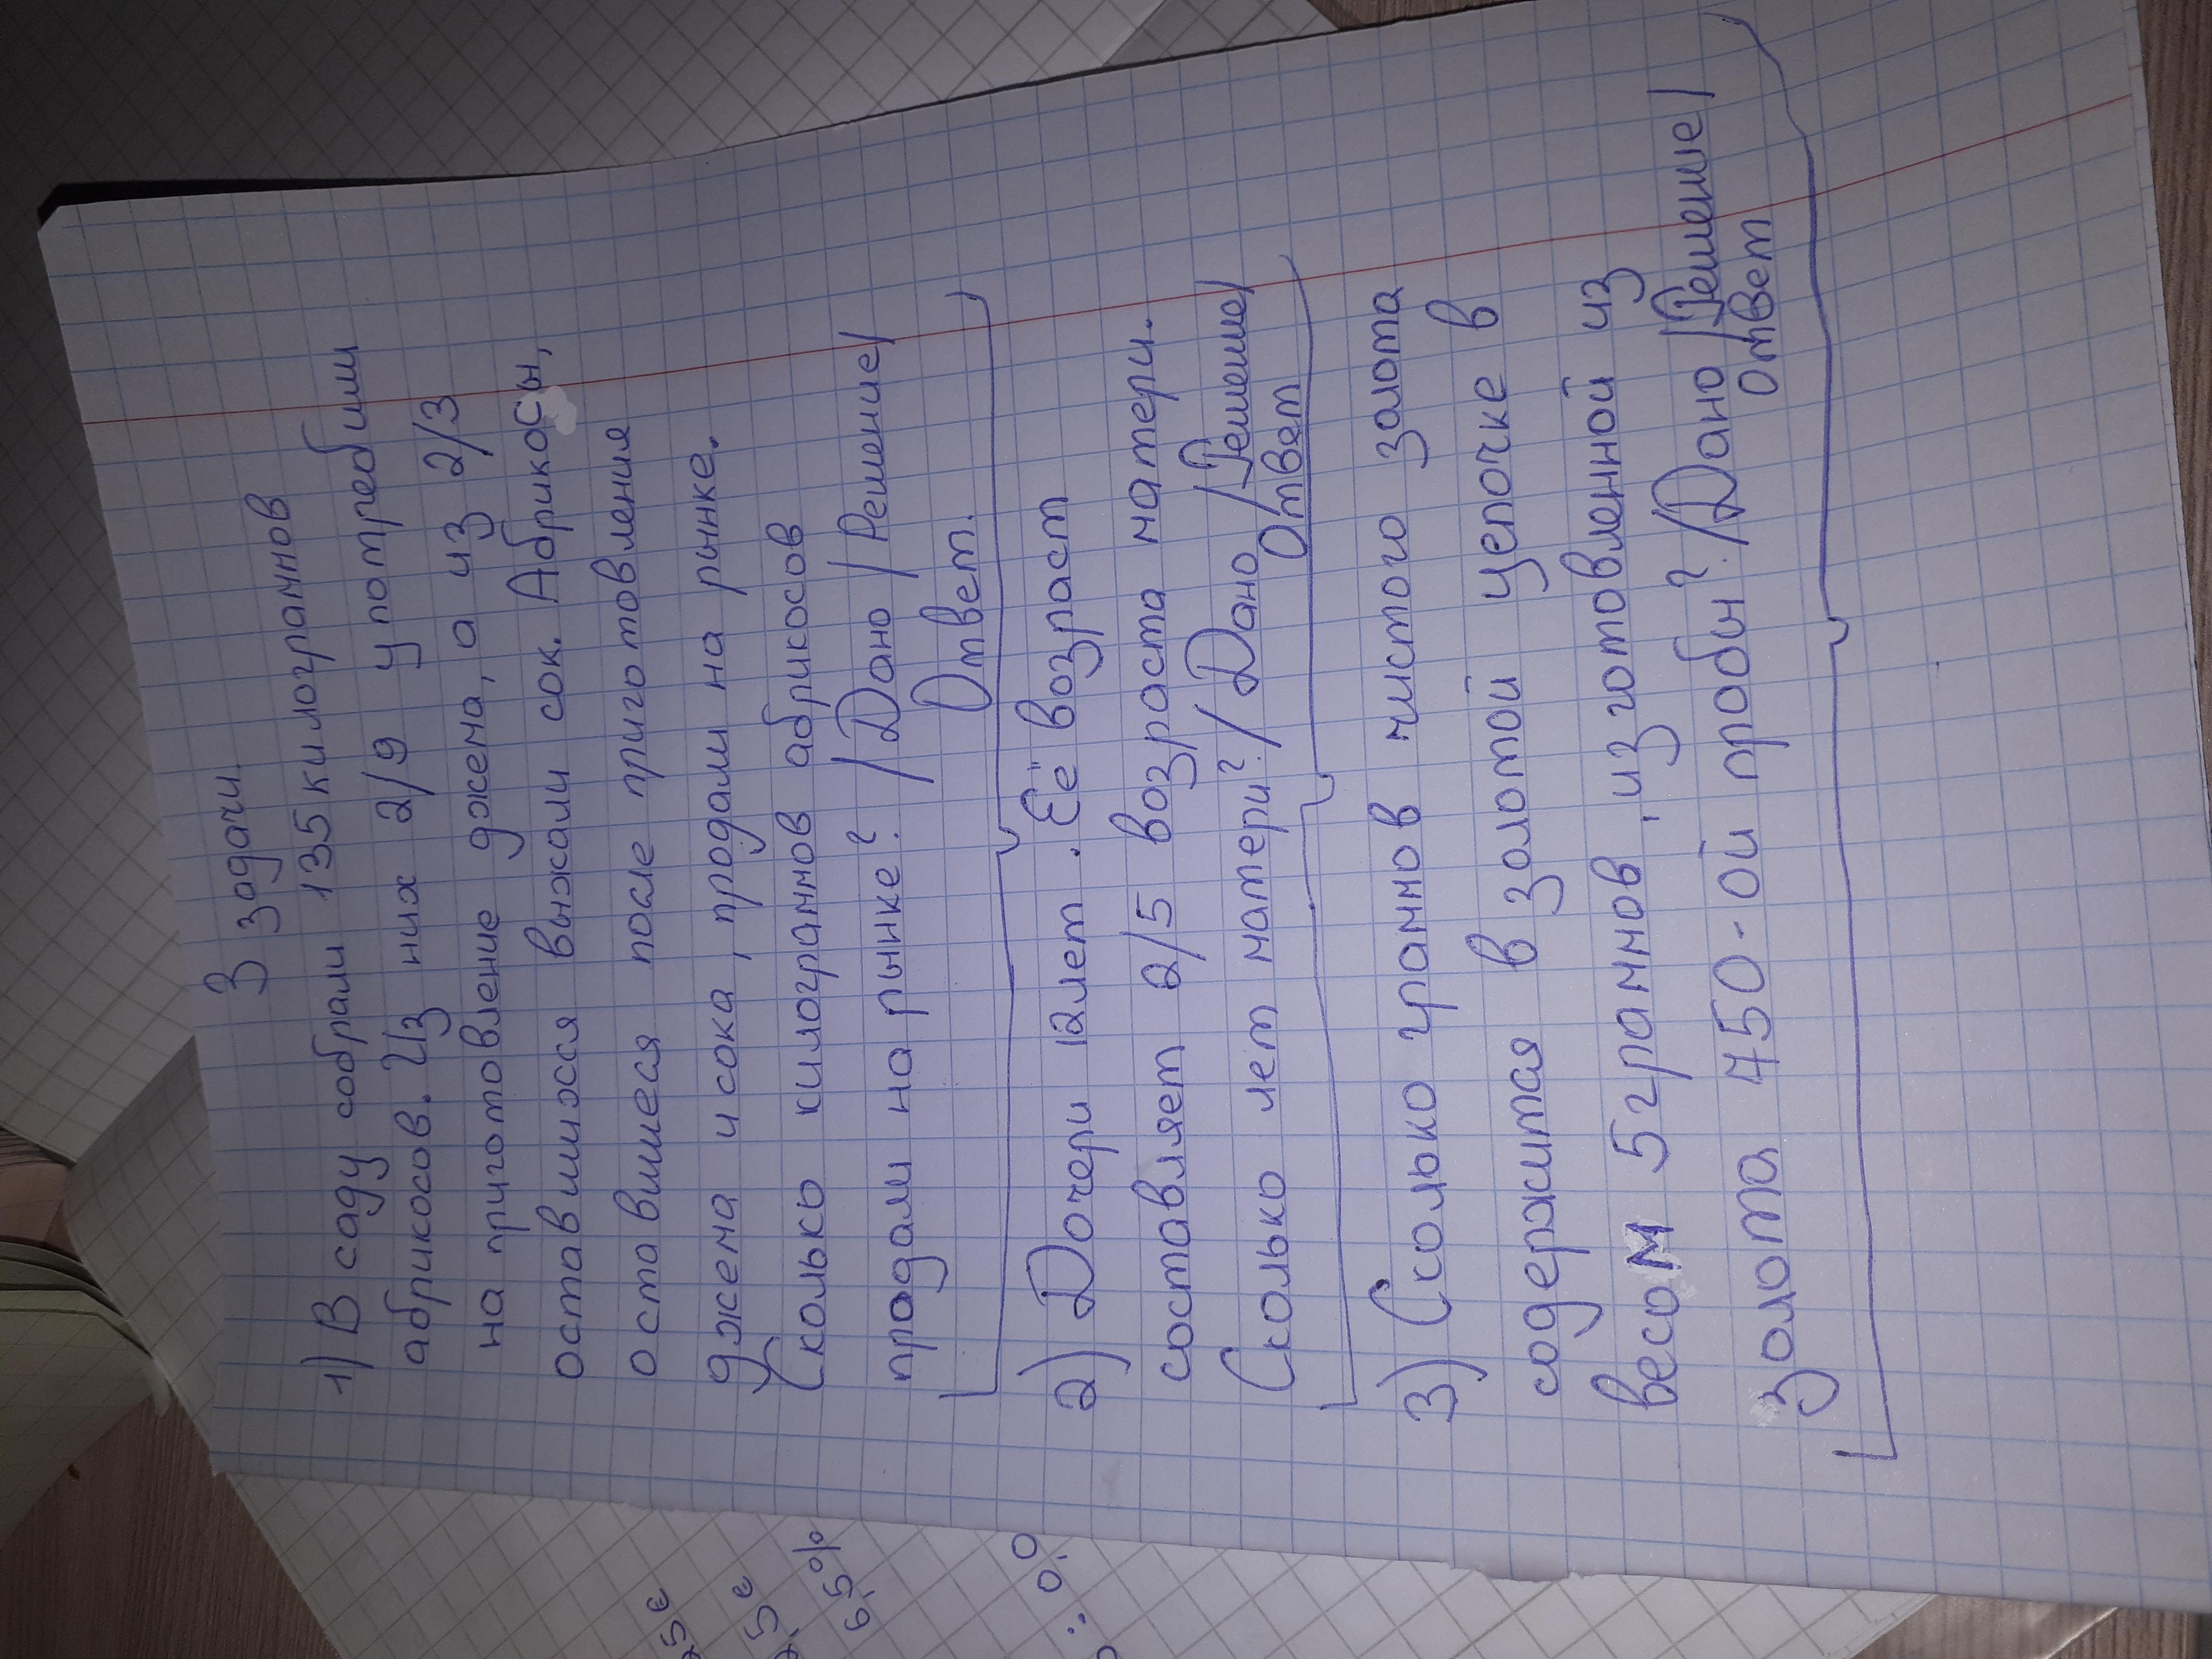 3 задачи.
1) В саду собрали 135 килограммов
абрикосов. Из них 2/9 употребили
на приготовление джема, а из 2/3
оставшихся выжали сок. Абрикосы,
оставшиеся после приготовления
джема и сока, продали на рынке.
Сколько килограммов абрикосов
продали на рынке? /Дано/Решение/
Ответ.
2) Дочери 12лет. Её возраст
составляет 2/5 возраста матери.
Сколько лет матери? /Дано/Решение/
Ответ
3) Сколько граммов чистого золота
содержится в золотой цепочке в
весом 5 граммов, изготовленной из
золота 750-ой пробы? /Дано/Решение/
Ответ
6,5%
0,0